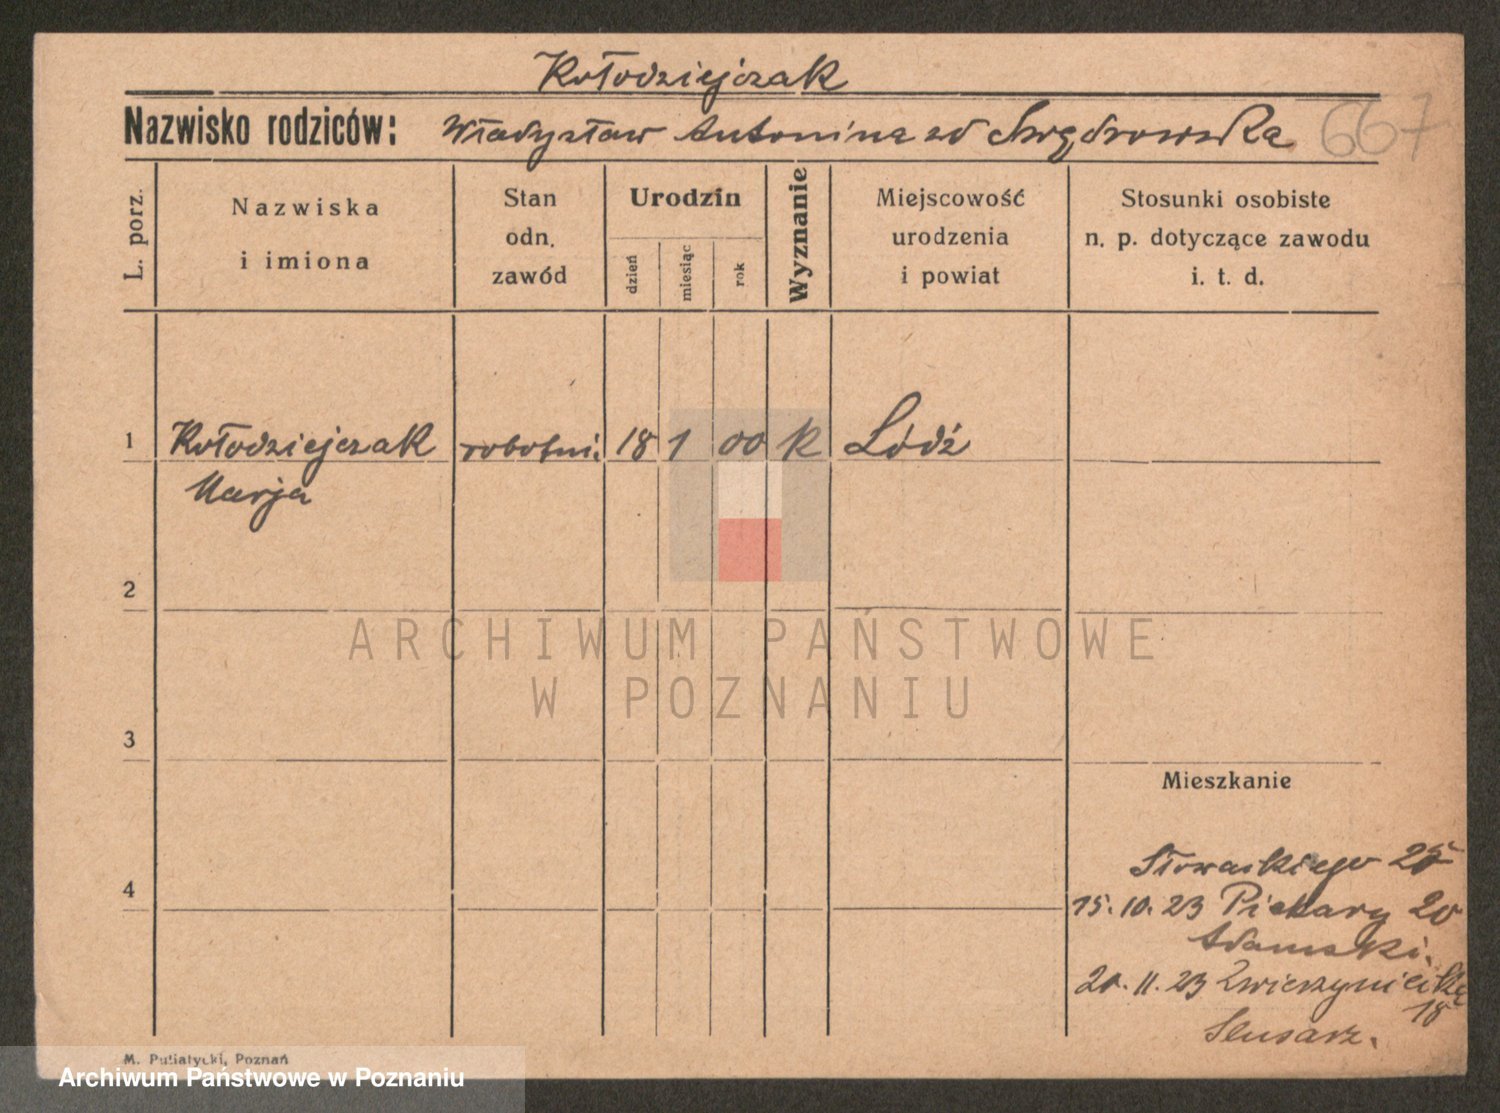 Kołodziejczak
Nazwisko rodziców: Władysław Antonina zd 667
L. porz.
Nazwiska
i imiona
Stan
odn.
zawód
Urodzin
dzień
miesiąc
rok
Wyznanie
Miejscowość
urodzenia
i powiat
Stosunki osobiste
n. p. dotyczące zawodu
i. t. d.
1 Kołodziejczak robotni. 18 1 00 K Łódź
Marja
2
ARCHIWUM PAŃSTWOWE
W POZNANIU
3
Mieszkanie
Słowackiego 25
4
15.10.23 Piekary 20
Adamski.
20.11.23 Zwierzyniecka
18
Slusarz.
M. Putiatycki, Poznań
Archiwum Państwowe w Poznaniu